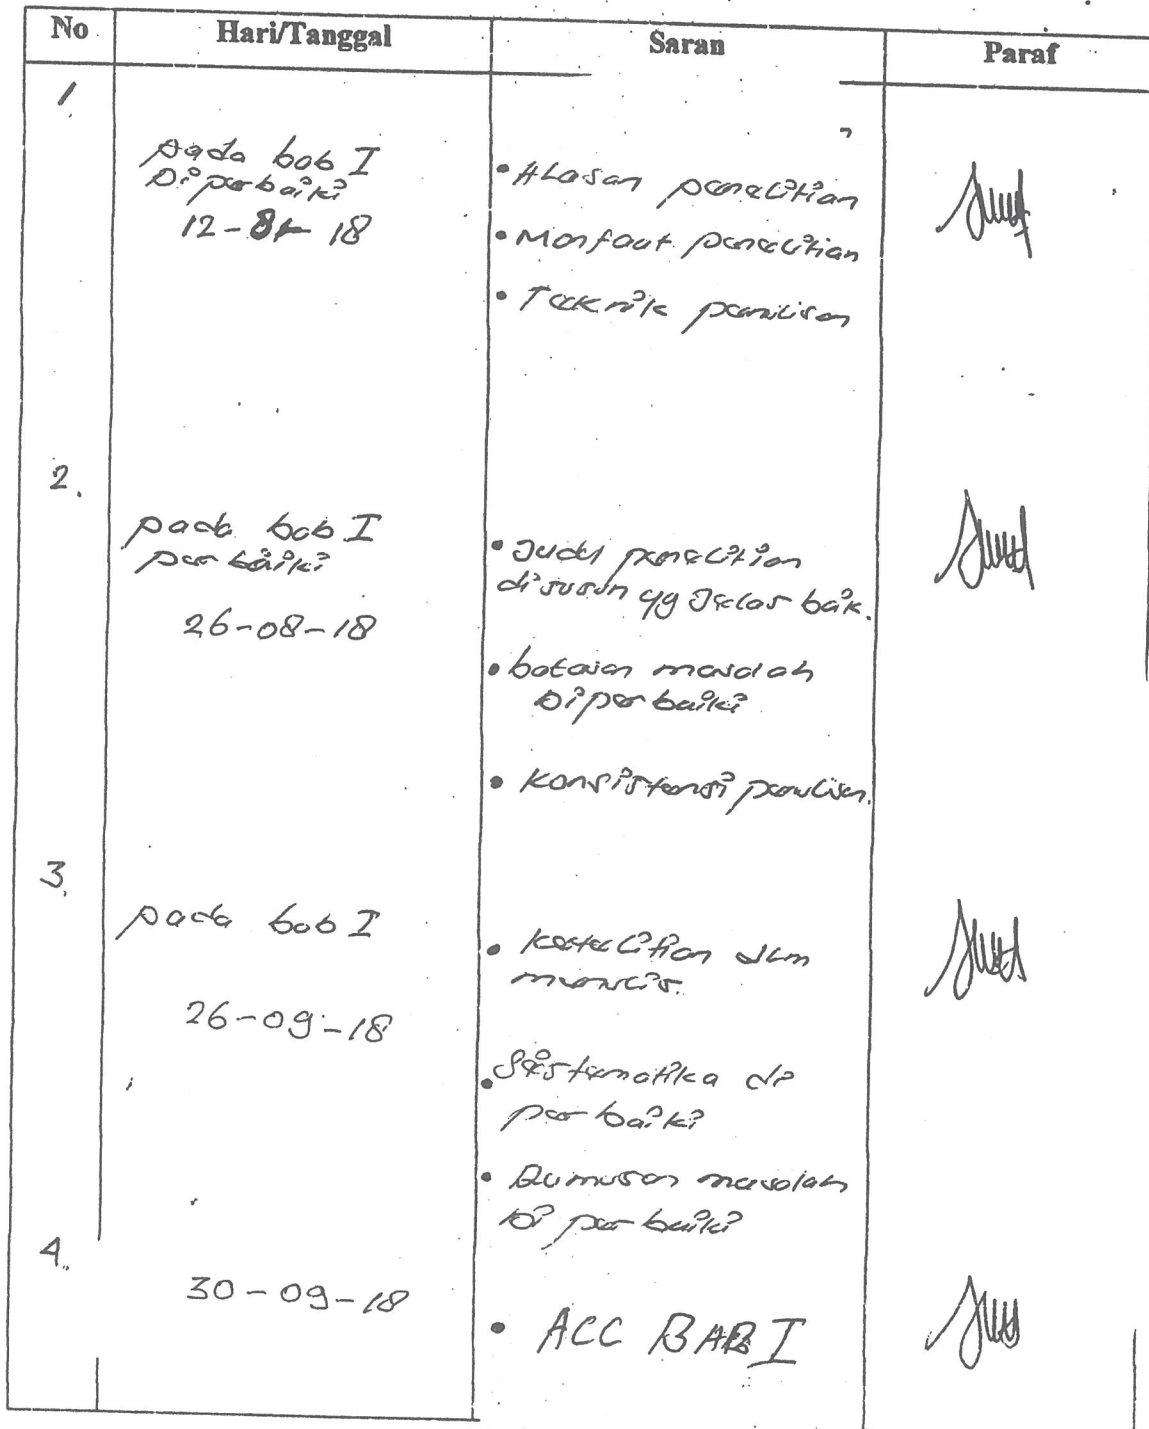 No Hari/Tanggal Saran Paraf
1.
pada bab I
Diperbaiki
12-08-18
• Alasan penelitian
• Manfaat penelitian
• Teknik penulisan
2.
pada bab I
perbaiki
26-08-18
• Judul penelitian
disusun yg Jelas baik.
• batasan masalah
Diperbaiki
• Konsistensi penulisan.
3.
pada bab I
26-09-18
• Ketelitian dlm
menulis.
• Sistematika di
perbaiki
• Rumusan masalah
Di perbaiki
4.
30-09-18
• ACC BAB I